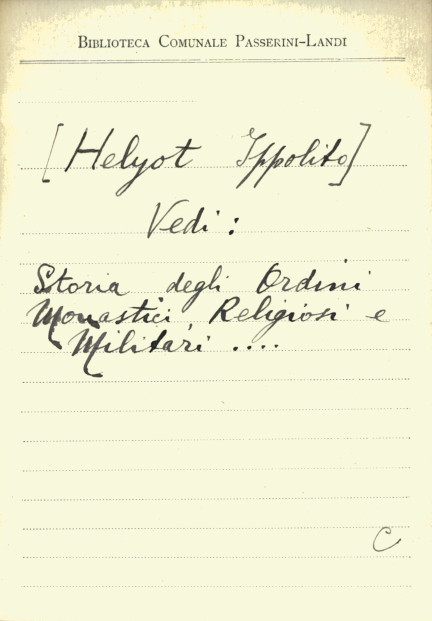 BIBLIOTECA COMUNALE PASSERINI-LANDI
[Helyot Ippolito]
Vedi:
Storia degli Ordini
Monastici, Religiosi e
Militari ....
C